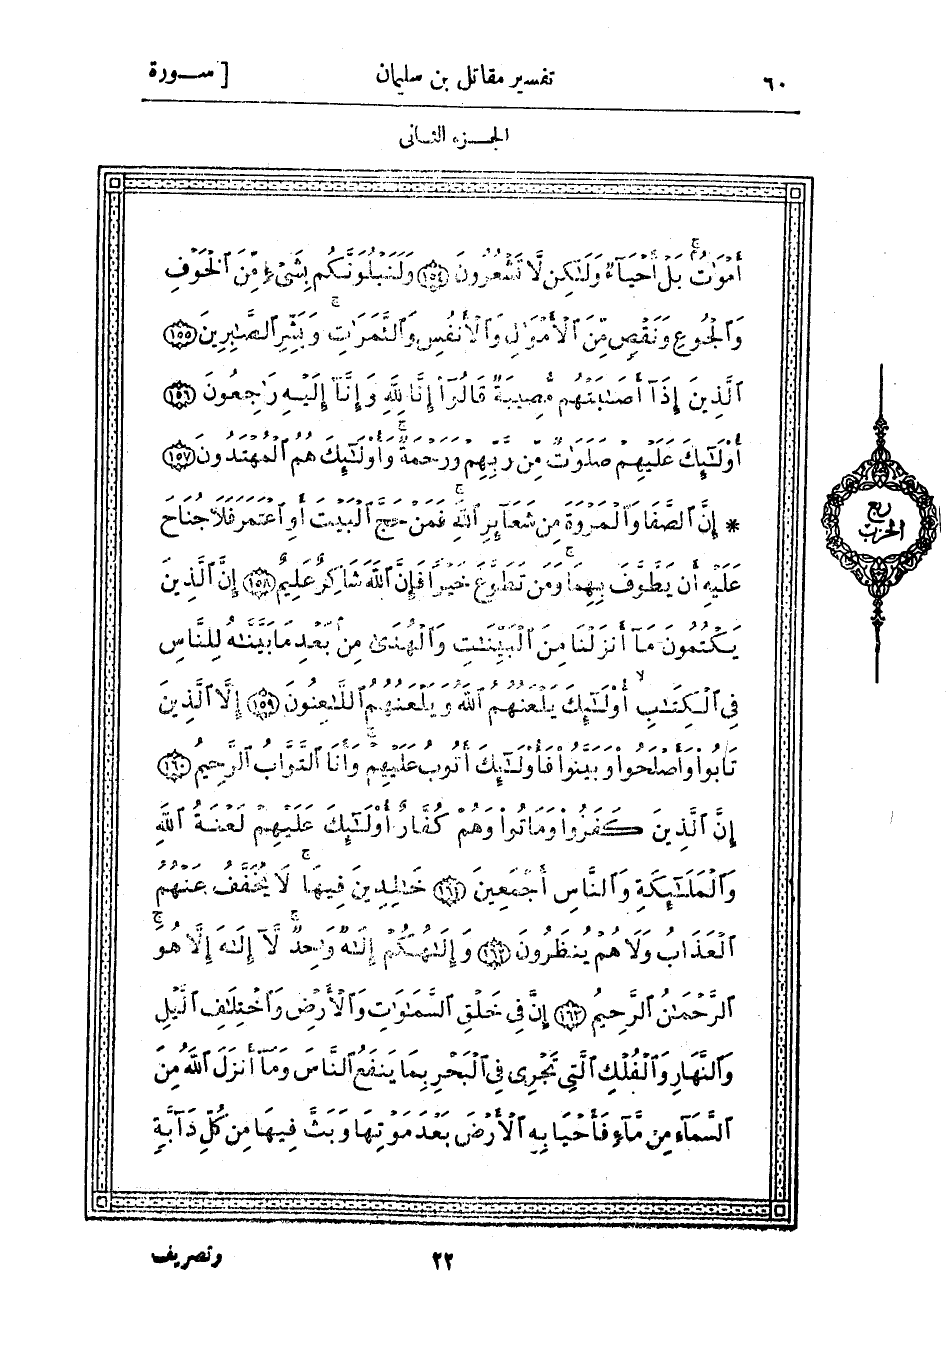 ٦٠ تفسير مقاتل بن سليمان [ سورة
الجزء الثانى
أَمْوَٰتٌۢ بَلْ أَحْيَآءٌ وَلَٰكِن لَّا تَشْعُرُونَ ﴿١٥٤﴾ وَلَنَبْلُوَنَّكُم بِشَىْءٍ مِّنَ ٱلْخَوْفِ
وَٱلْجُوعِ وَنَقْصٍ مِّنَ ٱلْأَمْوَٰلِ وَٱلْأَنفُسِ وَٱلثَّمَرَٰتِ ۗ وَبَشِّرِ ٱلصَّٰبِرِينَ ﴿١٥٥﴾
ٱلَّذِينَ إِذَآ أَصَٰبَتْهُم مُّصِيبَةٌ قَالُوٓا۟ إِنَّا لِلَّهِ وَإِنَّآ إِلَيْهِ رَٰجِعُونَ ﴿١٥٦﴾
أُو۟لَٰٓئِكَ عَلَيْهِمْ صَلَوَٰتٌ مِّن رَّبِّهِمْ وَرَحْمَةٌ ۖ وَأُو۟لَٰٓئِكَ هُمُ ٱلْمُهْتَدُونَ ﴿١٥٧﴾
* إِنَّ ٱلصَّفَا وَٱلْمَرْوَةَ مِن شَعَآئِرِ ٱللَّهِ ۖ فَمَنْ حَجَّ ٱلْبَيْتَ أَوِ ٱعْتَمَرَ فَلَا جُنَاحَ
عَلَيْهِ أَن يَطَّوَّفَ بِهِمَا ۚ وَمَن تَطَوَّعَ خَيْرًا فَإِنَّ ٱللَّهَ شَاكِرٌ عَلِيمٌ ﴿١٥٨﴾ إِنَّ ٱلَّذِينَ
يَكْتُمُونَ مَآ أَنزَلْنَا مِنَ ٱلْبَيِّنَٰتِ وَٱلْهُدَىٰ مِنۢ بَعْدِ مَا بَيَّنَّٰهُ لِلنَّاسِ
فِى ٱلْكِتَٰبِ ۙ أُو۟لَٰٓئِكَ يَلْعَنُهُمُ ٱللَّهُ وَيَلْعَنُهُمُ ٱللَّٰعِنُونَ ﴿١٥٩﴾ إِلَّا ٱلَّذِينَ
تَابُوا۟ وَأَصْلَحُوا۟ وَبَيَّنُوا۟ فَأُو۟لَٰٓئِكَ أَتُوبُ عَلَيْهِمْ ۚ وَأَنَا ٱلتَّوَّابُ ٱلرَّحِيمُ ﴿١٦٠﴾
إِنَّ ٱلَّذِينَ كَفَرُوا۟ وَمَاتُوا۟ وَهُمْ كُفَّارٌ أُو۟لَٰٓئِكَ عَلَيْهِمْ لَعْنَةُ ٱللَّهِ
وَٱلْمَلَٰٓئِكَةِ وَٱلنَّاسِ أَجْمَعِينَ ﴿١٦١﴾ خَٰلِدِينَ فِيهَا ۖ لَا يُخَفَّفُ عَنْهُمُ
ٱلْعَذَابُ وَلَا هُمْ يُنظَرُونَ ﴿١٦٢﴾ وَإِلَٰهُكُمْ إِلَٰهٌ وَٰحِدٌ ۖ لَّآ إِلَٰهَ إِلَّا هُوَ
ٱلرَّحْمَٰنُ ٱلرَّحِيمُ ﴿١٦٣﴾ إِنَّ فِى خَلْقِ ٱلسَّمَٰوَٰتِ وَٱلْأَرْضِ وَٱخْتِلَٰفِ ٱلَّيْلِ
وَٱلنَّهَارِ وَٱلْفُلْكِ ٱلَّتِى تَجْرِى فِى ٱلْبَحْرِ بِمَا يَنفَعُ ٱلنَّاسَ وَمَآ أَنزَلَ ٱللَّهُ مِنَ
ٱلسَّمَآءِ مِن مَّآءٍ فَأَحْيَا بِهِ ٱلْأَرْضَ بَعْدَ مَوْتِهَا وَبَثَّ فِيهَا مِن كُلِّ دَآبَّةٍ
ربع
الحزب
٢٢
وتصريف